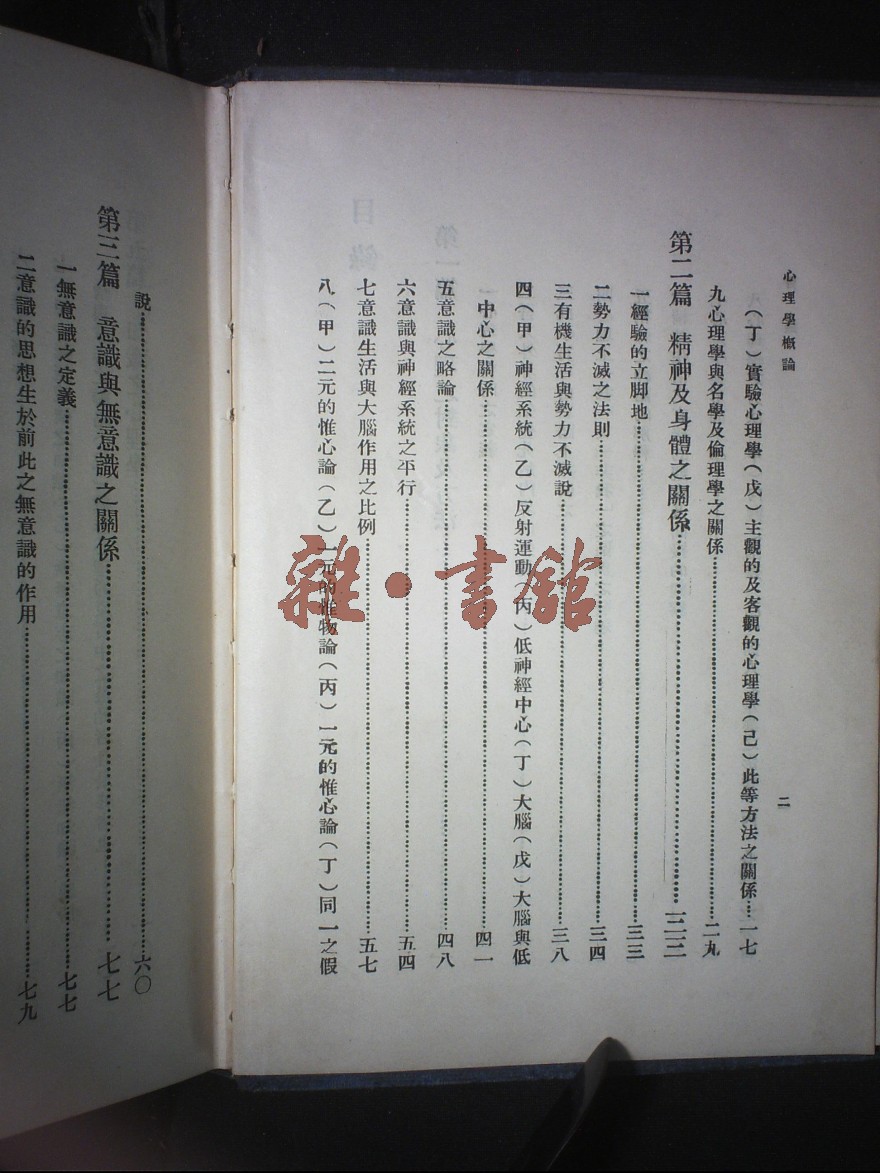 心理學概論
二
（丁）實驗心理學（戊）主觀的及客觀的心理學（己）此等方法之關係…一七
九心理學與名學及倫理學之關係……二九
第二篇 精神及身體之關係……三三
一經驗的立脚地……三三
二勢力不滅之法則……三四
三有機生活與勢力不滅說……三八
四（甲）神經系統（乙）反射運動（丙）低神經中心（丁）大腦（戊）大腦與低
中心之關係……四一
五意識之略論……四八
六意識與神經系統之平行……五四
七意識生活與大腦作用之比例……五七
八（甲）二元的惟心論（乙）一元的惟物論（丙）一元的惟心論（丁）同一之假
說……六〇
第三篇 意識與無意識之關係……七七
一無意識之定義……七七
二意識的思想生於前此之無意識的作用……七九
雜·書館